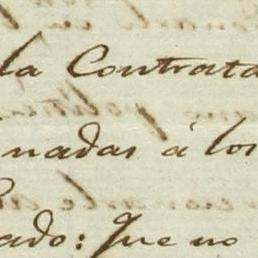 la Contrata
nadas á los
ado: Que no